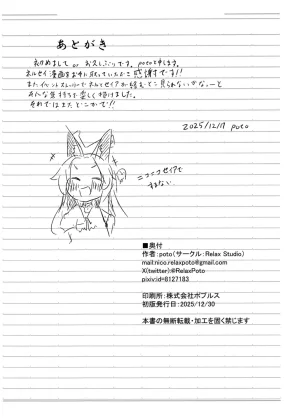 あとがき
初めまして or お久しぶりです。potoと申します。
ネルセイ漫画をお手に取っていただき感謝です!!
またイベントストーリーで
みたいな気持ちで楽しく描けました。
それではまたどこかで!!
2025/12/17 poto
ニコニコセイアで
すまない
■奥付
作者:poto(サークル:Relax Studio)
mail:nico.relaxpoto@gmail.com
X(twitter):@RelaxPoto
pixiv:id=6127183
印刷所:株式会社ポプルス
初版発行日:2025/12/30
本書の無断転載・加工を固く禁じます